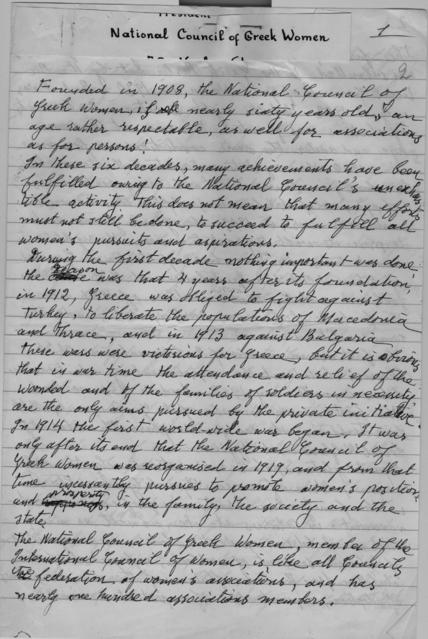 President
National Council of Greek Women
1
2
Founded in 1908, the National Council of
Greek Women, is nearly sixty years old, an
age rather respectable, as well for associations
as for persons!
In these six decades, many achievements have been
fulfilled owing to the National Council's inexhaus
tible activity. This does not mean that many efforts
must not still be done, to succeed to fulfill all
women's pursuits and aspirations.
During the first decade nothing important was done:
the reason was that 4 years after its foundation,
in 1912, Greece was obliged to fight against
Turkey, to liberate the populations of Macedonia
and Thrace, and in 1913 against Bulgaria
These wars were victorious for Greece, but it is obvious
that in war time the attendance and relief of the
wonded and of the families of soldiers in necessity,
are the only aims pursued by the private initiative.
In 1914 the first world wide war began. It was
only after its end that the National Council of
Greek Women was reorganised in 1919, and from that
time incessantly pursues to promote women's position
and prosperity, in the family, the society and the
state.
The National Council of Greek Women, member of the
International Council of Women, is like all Councils
federation of women's associations, and has
nearly one hundred associations members.